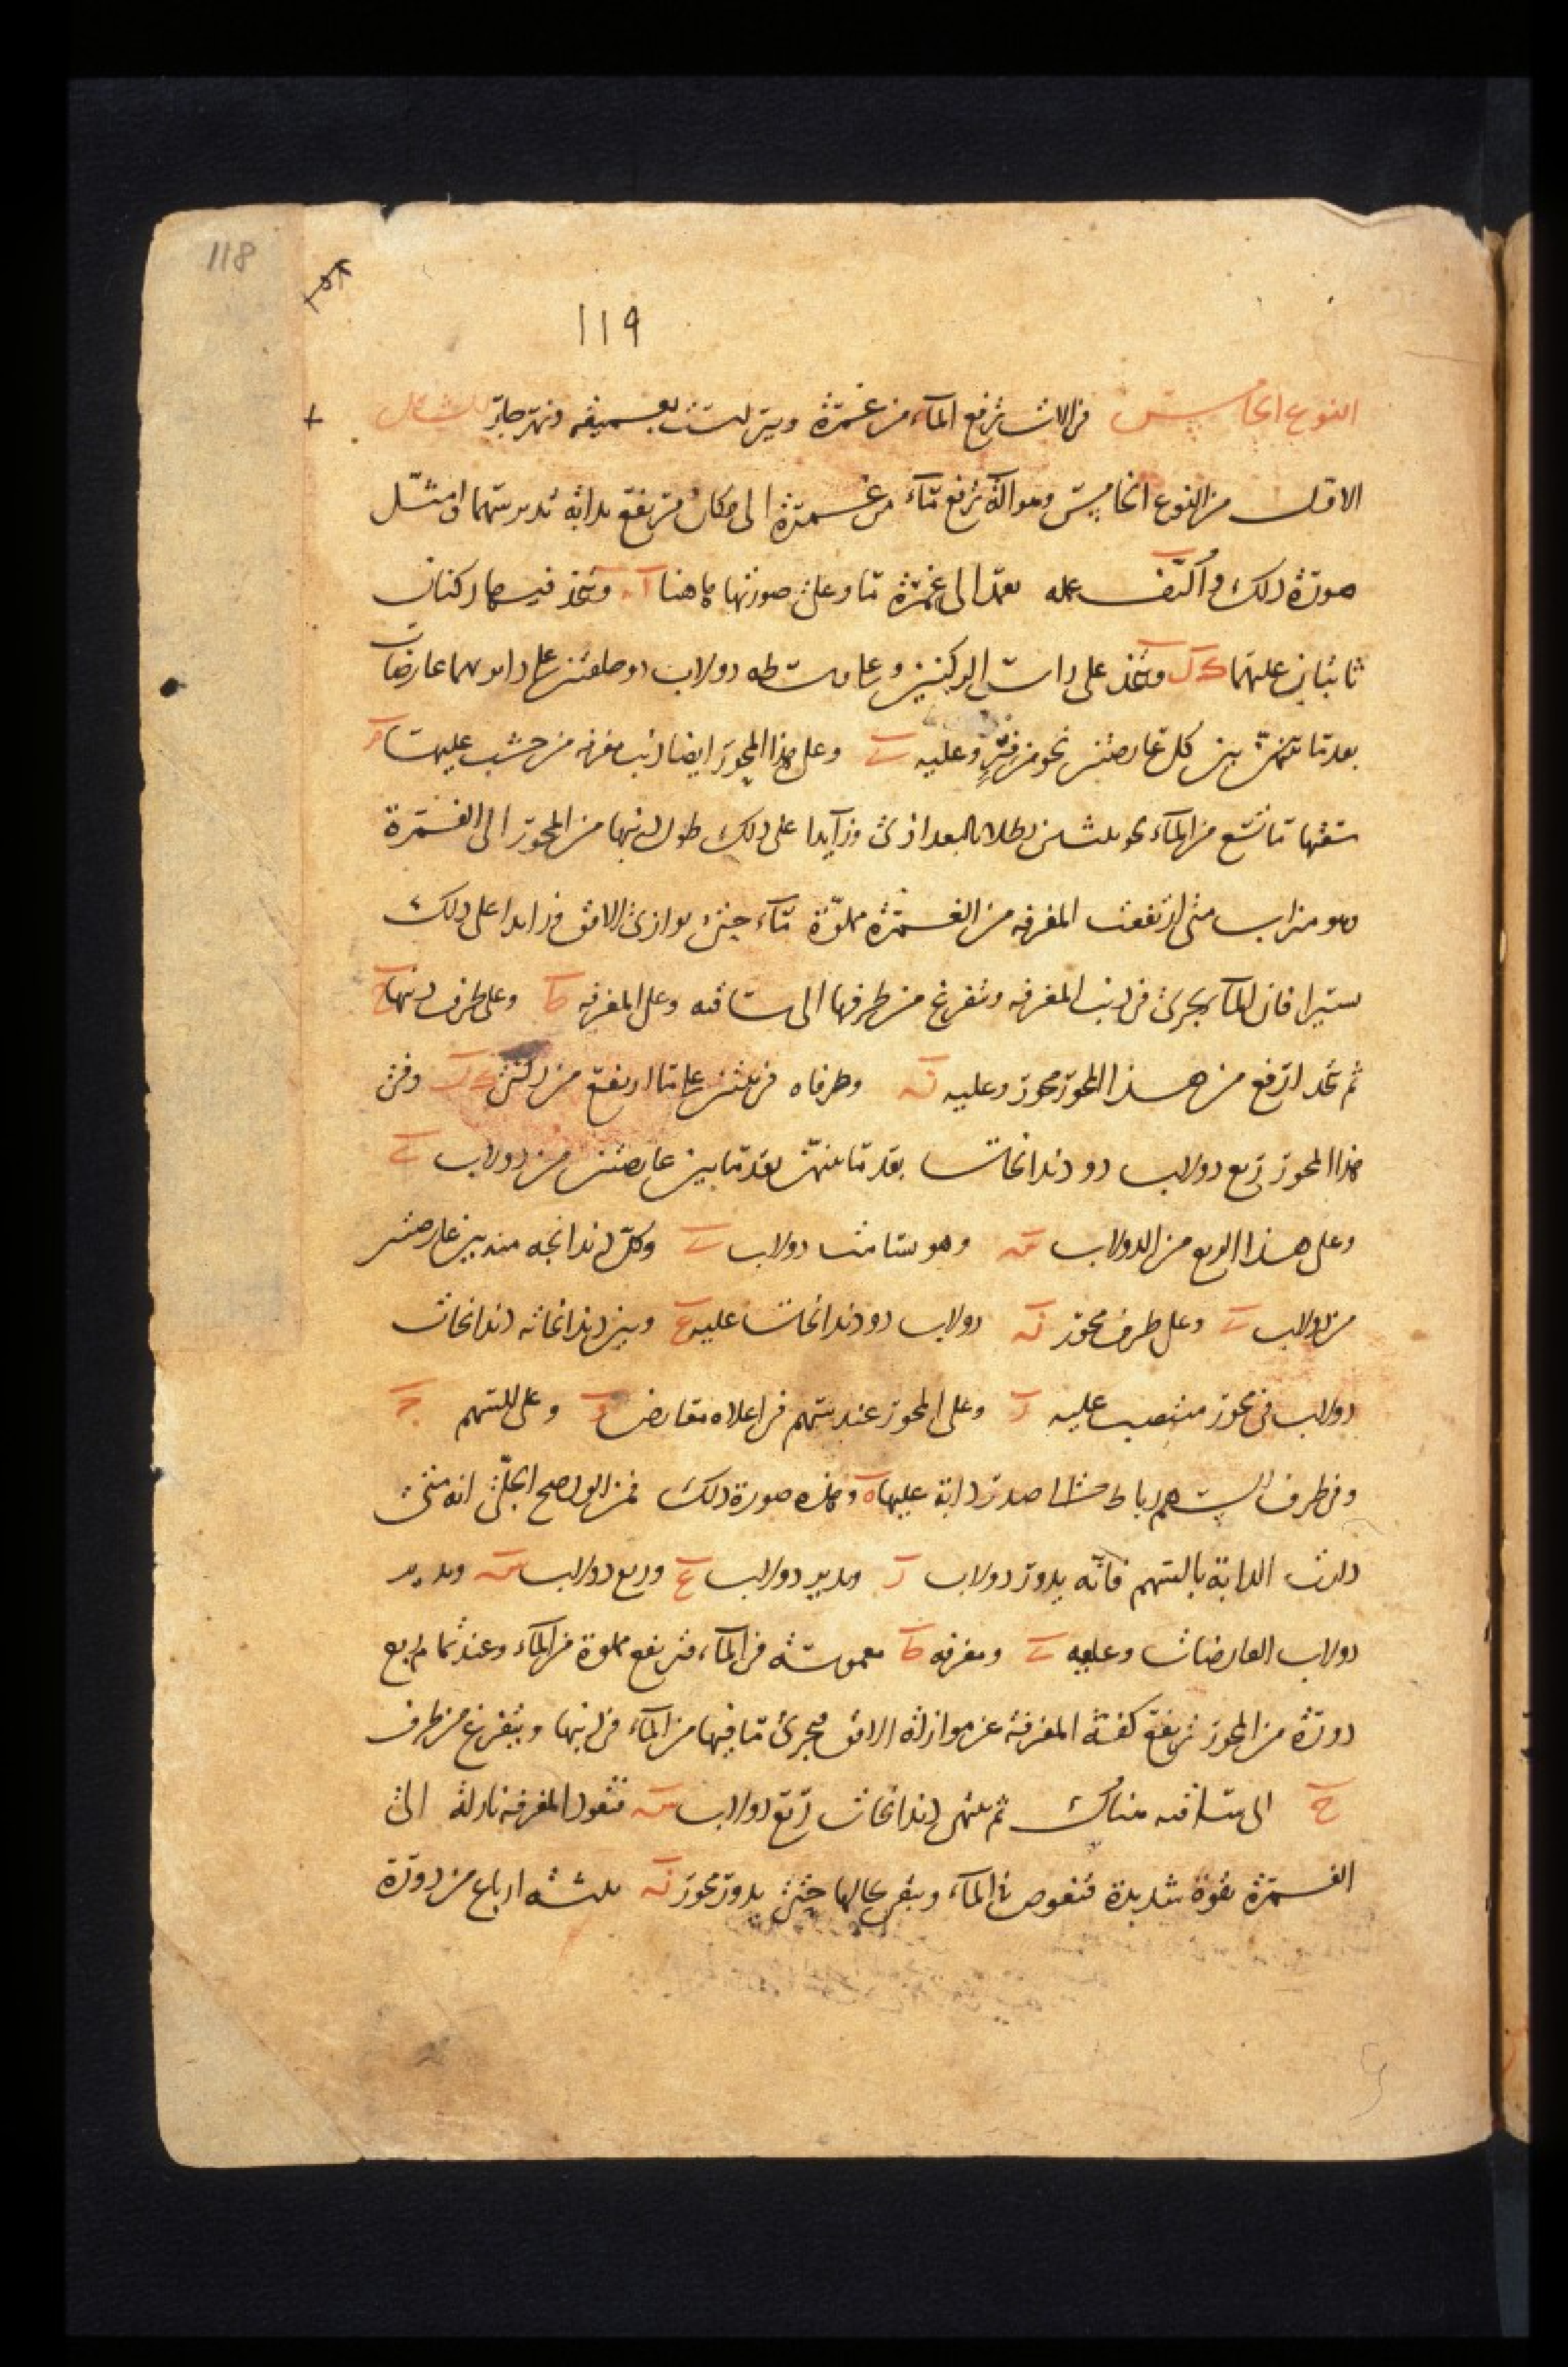 118
119
النوع الخامس في آلات ترفع الماء من غمرة وبئر ليست بعميقة ونهر جار الشكل
الاول من النوع الخامس وهو آلة ترفع ماء من غمرة الى مكان مرتفع بدابة تدير سهما وامثل
صورة ذلك واكيف عمله نعمد الى غمرة ما وعلى صورتها هاهنا آ ونتخذ فيها ركنان
ثابتان عليهما ك ل ونتخذ على راس الركنين وعلى وسطه دولاب ذو صلعتين على دايرهما عارضات
بعد ما بين كل عارضتين نحو من فتر وعليه وعلى هذا المحور ايضا ذنب مغرفة من خشب عليها
سعتها ما تسع من الماء نحو ثلثين رطلا بالبغدادي وزايدا على ذلك طول ذنبها من المحور الى الغمرة
وهو ميزاب متى ارتفعت المغرفة من الغمرة مملوة ماء حتى يوازي الافق وزايدا على ذلك
يسيرا فان الماء يجري في ذنب المغرفة وتفرغ من طرفها الى ساقية وعلى المغرفة ط وعلى طرف ذنبها ح
ثم نتخذ ارفع من هذا المحور محور وعليه ن وطرفاه في على ما ارتفع من ركني ك ل وفي
هذا المحور ربع دولاب ذو دندانجات بقدر ما بين عارضتين من دولاب
وعلى هذا الربع من الدولاب س وهو دولاب وكل دندانجه منه بين عارضتين
من دولاب وعلى طرف محور ن دولاب ذو دندانجات عليه ع وبين دندانجاته دندانجات
دولاب في محور منتصب عليه ر وعلى المحور عند سهم في اعلاه معارض وعلى السهم
وفي طرف السهم رباط صدر دابة عليها ه وهذه صورة ذلك فمن الواضح الجلي انه متى
دارت الدابة بالسهم فانه يدور دولاب ر ويدير دولاب ع وربع دولاب س ويدير
دولاب العارضات وعليه ومغرفة ط مغموسة في الماء فترتفع مملوة من الماء وعند تمام ربع
دورة من المحور ترتفع كفة المغرفة عن موازاة الافق فيجري ما فيها من الماء في ذنبها ويتفرغ من طرف
ح الى ساقية هناك ثم دندانجات ربع دولاب س فتعود المغرفة نازلة الى
الغمرة بقوة شديدة فتغوص في الماء وتبقى بحالها حتى يدور محور ن ثلثة ارباع من دورة